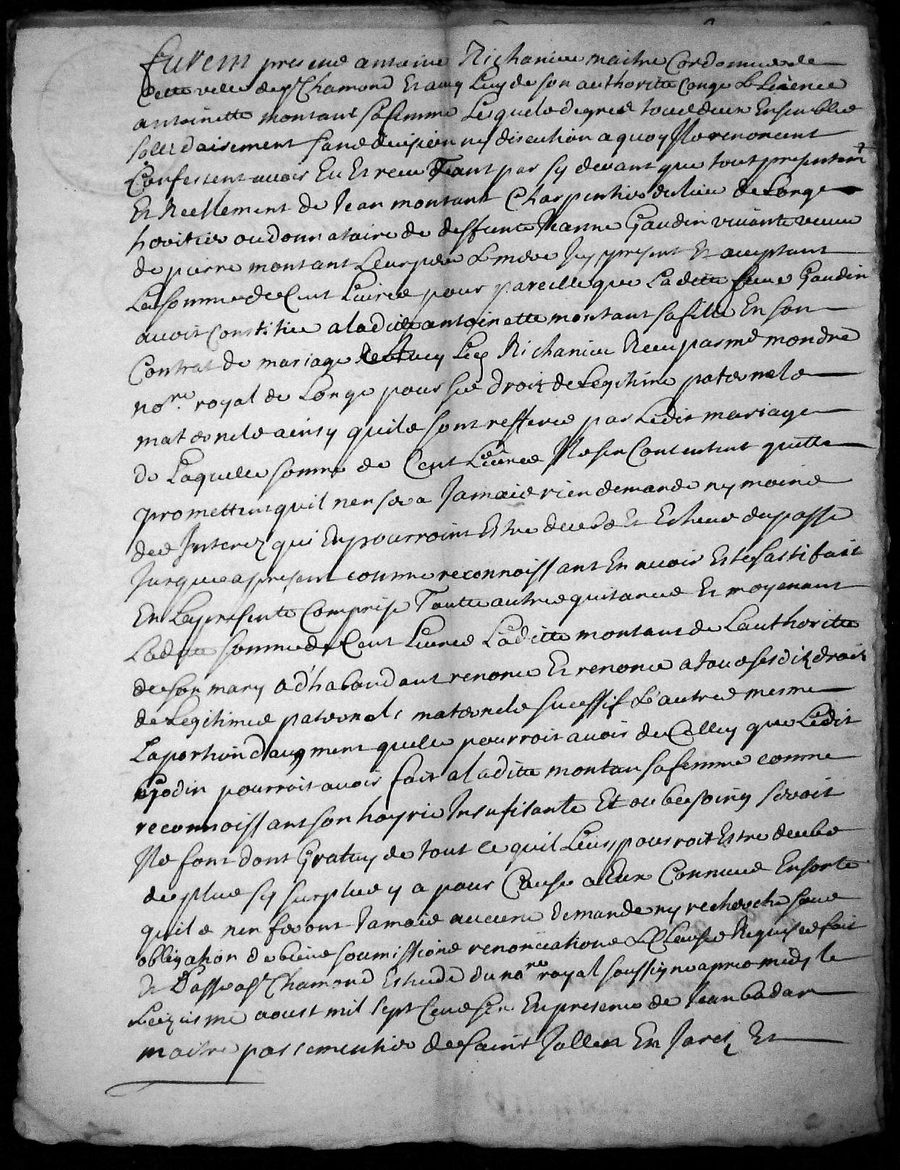 furent presens antoine Richaniere maitre Cordonnier de
Cette ville de st Chamond Et avec luy de son authorité Congé & Licence
antoinette montant sa femme Lequels de gred tous deux Ensemble
solidairement sans division ny discution a quoy Ils renoncent
Confessent avoir Eu Et receu Tant par sy devant que tout presentemt
Et Reellement de Jean montant Charpentier du lieu de Longe
heritier ou donnataire de deffunte Jeanne Gaudin vivante veuve
de pierre montant Leurs pere & mere Icy present Et aceptant
La somme de Cent Livres pour pareille que Ladette feue Gaudin
avoit Constitue a ladite antoinette montant sa fille En son
Contrat de mariage avec Led Richaniere Receu par me mondre
nore royal de Longe pour ses droit de Legitime paternele
maternele ainsy quils sont refferes par Ledit mariage
de Laquelle somme de Cent Livres Ils sen Contentent quitte
promettent quil nen sera Jamais rien demande ny moins
des Interez qui En pourroint Estre deubs Et Escheus du passe
Jusques a present comme reconnoissant En avoir Este sastifait
En La presente Comprise Toutte autres quitances Et moyenant
Ladite somme de Cent Livres Laditte montant de Lauthoritte
de son mary a d'habondant renonce Et renonce a tous sesdit droit
de Legitimes paternels maternels sucessif & autres mesme
La portion daugment quelle pourroit avoir de Celluy que Ledit
Godin pourroit avoir fait a laditte montan sa femme comme
reconnoissant son hoyrie Insufisante Et ou besoing seroit
Ils font dont Gratuy de tout Ce quil Leurs pourroit Estre deubs
de plus sy surplus y a pour Cause a Eux Connues En sorte
quils nen feront Jamais aucune demande ny recherche sous
obligation de biens soumissions renonciations & Clauses Requises fait
Et Passe a st Chamond Estude du nore royal soussigne apres midy le
aoust mil sept Cens En presence de Jean badar
maitre passementier de saint Jullien En Jarez Et